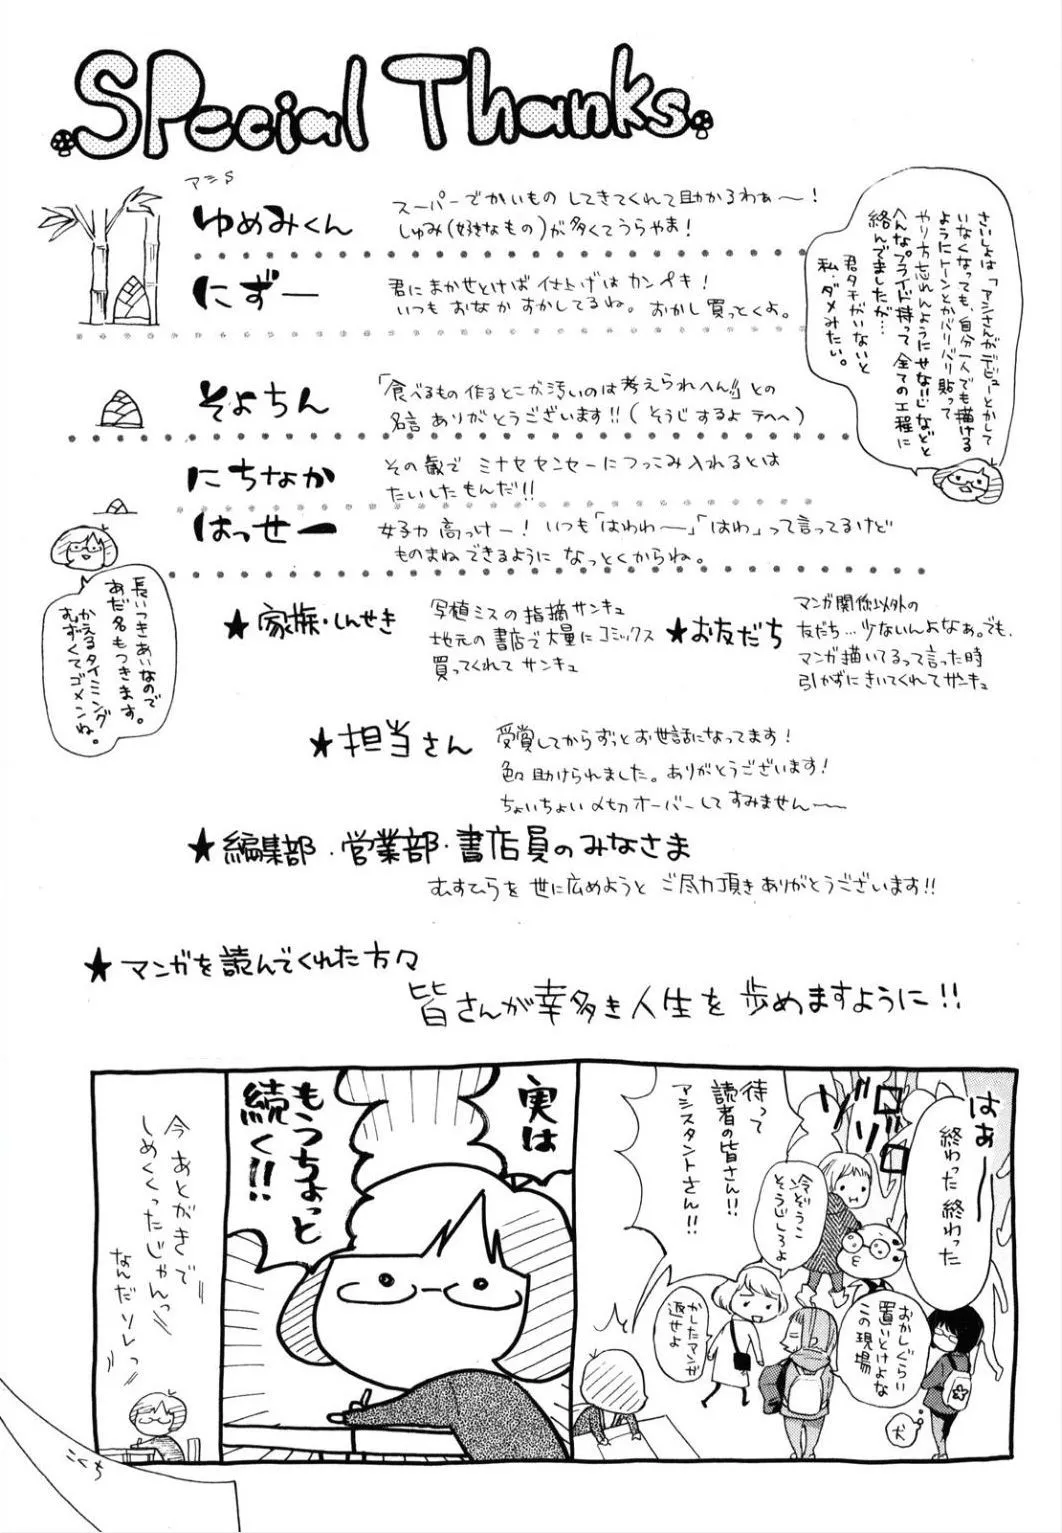 SPecial Thanks
アシS
ゆめみくん
スーパーでかいもの してきてくれて助かるわぁ〜！
しゅみ(好きなもの)が多くてうらやま！
にずー
君にまかせとけば 仕上げは カンペキ！
いつも おなか すかしてるね。おかし買っとくよ。
そよちん
「食べるもの 作るとこが汚いのは考えられへん!!」との
名言 ありがとうございます!!(そうじするよ テヘヘ)
にちなか
その歳で ミナセセンセーにつっこみ入れるとは
たいしたもんだ!!
はっせー
女子力 高っけー！ いつも「はわわ〜」「はわ」って言ってるけど
ものまねできるように なっとくからね。
さいしょは「アシさんがデビューとかして
いなくなっても、自分一人でも描ける
ようにトーンとかバリバリ貼って
やり方忘れんようにせな!!」などと
へんなプライド持って全ての工程に
絡んでましたが…
君タチがいないと
私・ダメみたい。
長いつきあいなので
あだ名もつきます。
かえるタイミング
むずくてゴメンね。
★家族・しんせき
写植ミスの指摘サンキュ
地元の書店で大量にコミックス
買ってくれてサンキュ
★お友だち
マンガ関係以外の
友だち…少ないんよなぁ。でも、
マンガ描いてるって言った時
引かずにきいてくれてサンキュ
★担当さん
受賞してからずっとお世話になってます！
色々助けられました。ありがとうございます！
ちょいちょい〆切オーバーしてすみません〜
★編集部・営業部・書店員のみなさま
むすひらを 世に広めようと ご尽力頂きありがとうございます!!
★マンガを読んでくれた方々
皆さんが幸多き人生を 歩めますように!!
はぁー
終わった終わった
ゾロゾロ
待って
読者の皆さん!!
アシスタントさん!!
冷ぞうこ
そうじしろよ
かしたマンガ
返せよ
おかしぐらい
置いとけよな
この現場
犬
実は
もうちょっと
続く!!
今あとがきで
しめくくったじゃんっ
なんだソレっ
こくち